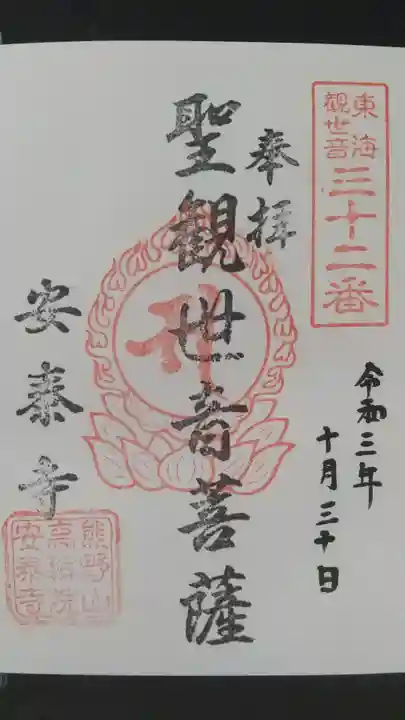 東海
観世音
三十二番
奉拝
聖観世音菩薩
令和三年
十月三十日
安泰寺
熊野山
安泰寺